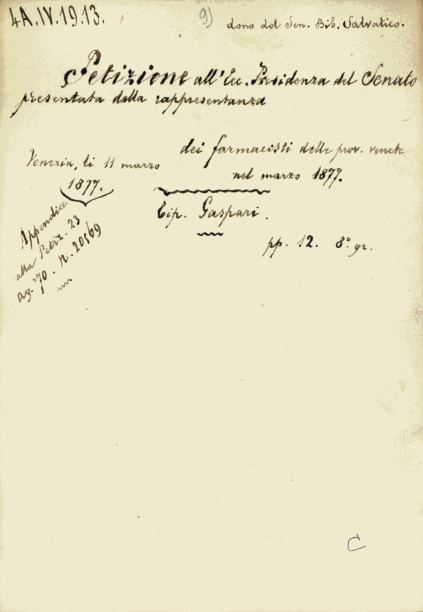 4A.IV.19.13.
9)
dono del Sen. Bib. Salvatico.
Petizione all'Ecc. Presidenza del Senato
presentata dalla rappresentanza
dei farmacisti delle prov. venete
nel marzo 1877.
Venezia, li 11 marzo
1877.
Tip. Gaspari.
pp. 12. 8º gr.
Appendice
alla Petiz. 23
ag. '70. N. 20569
C